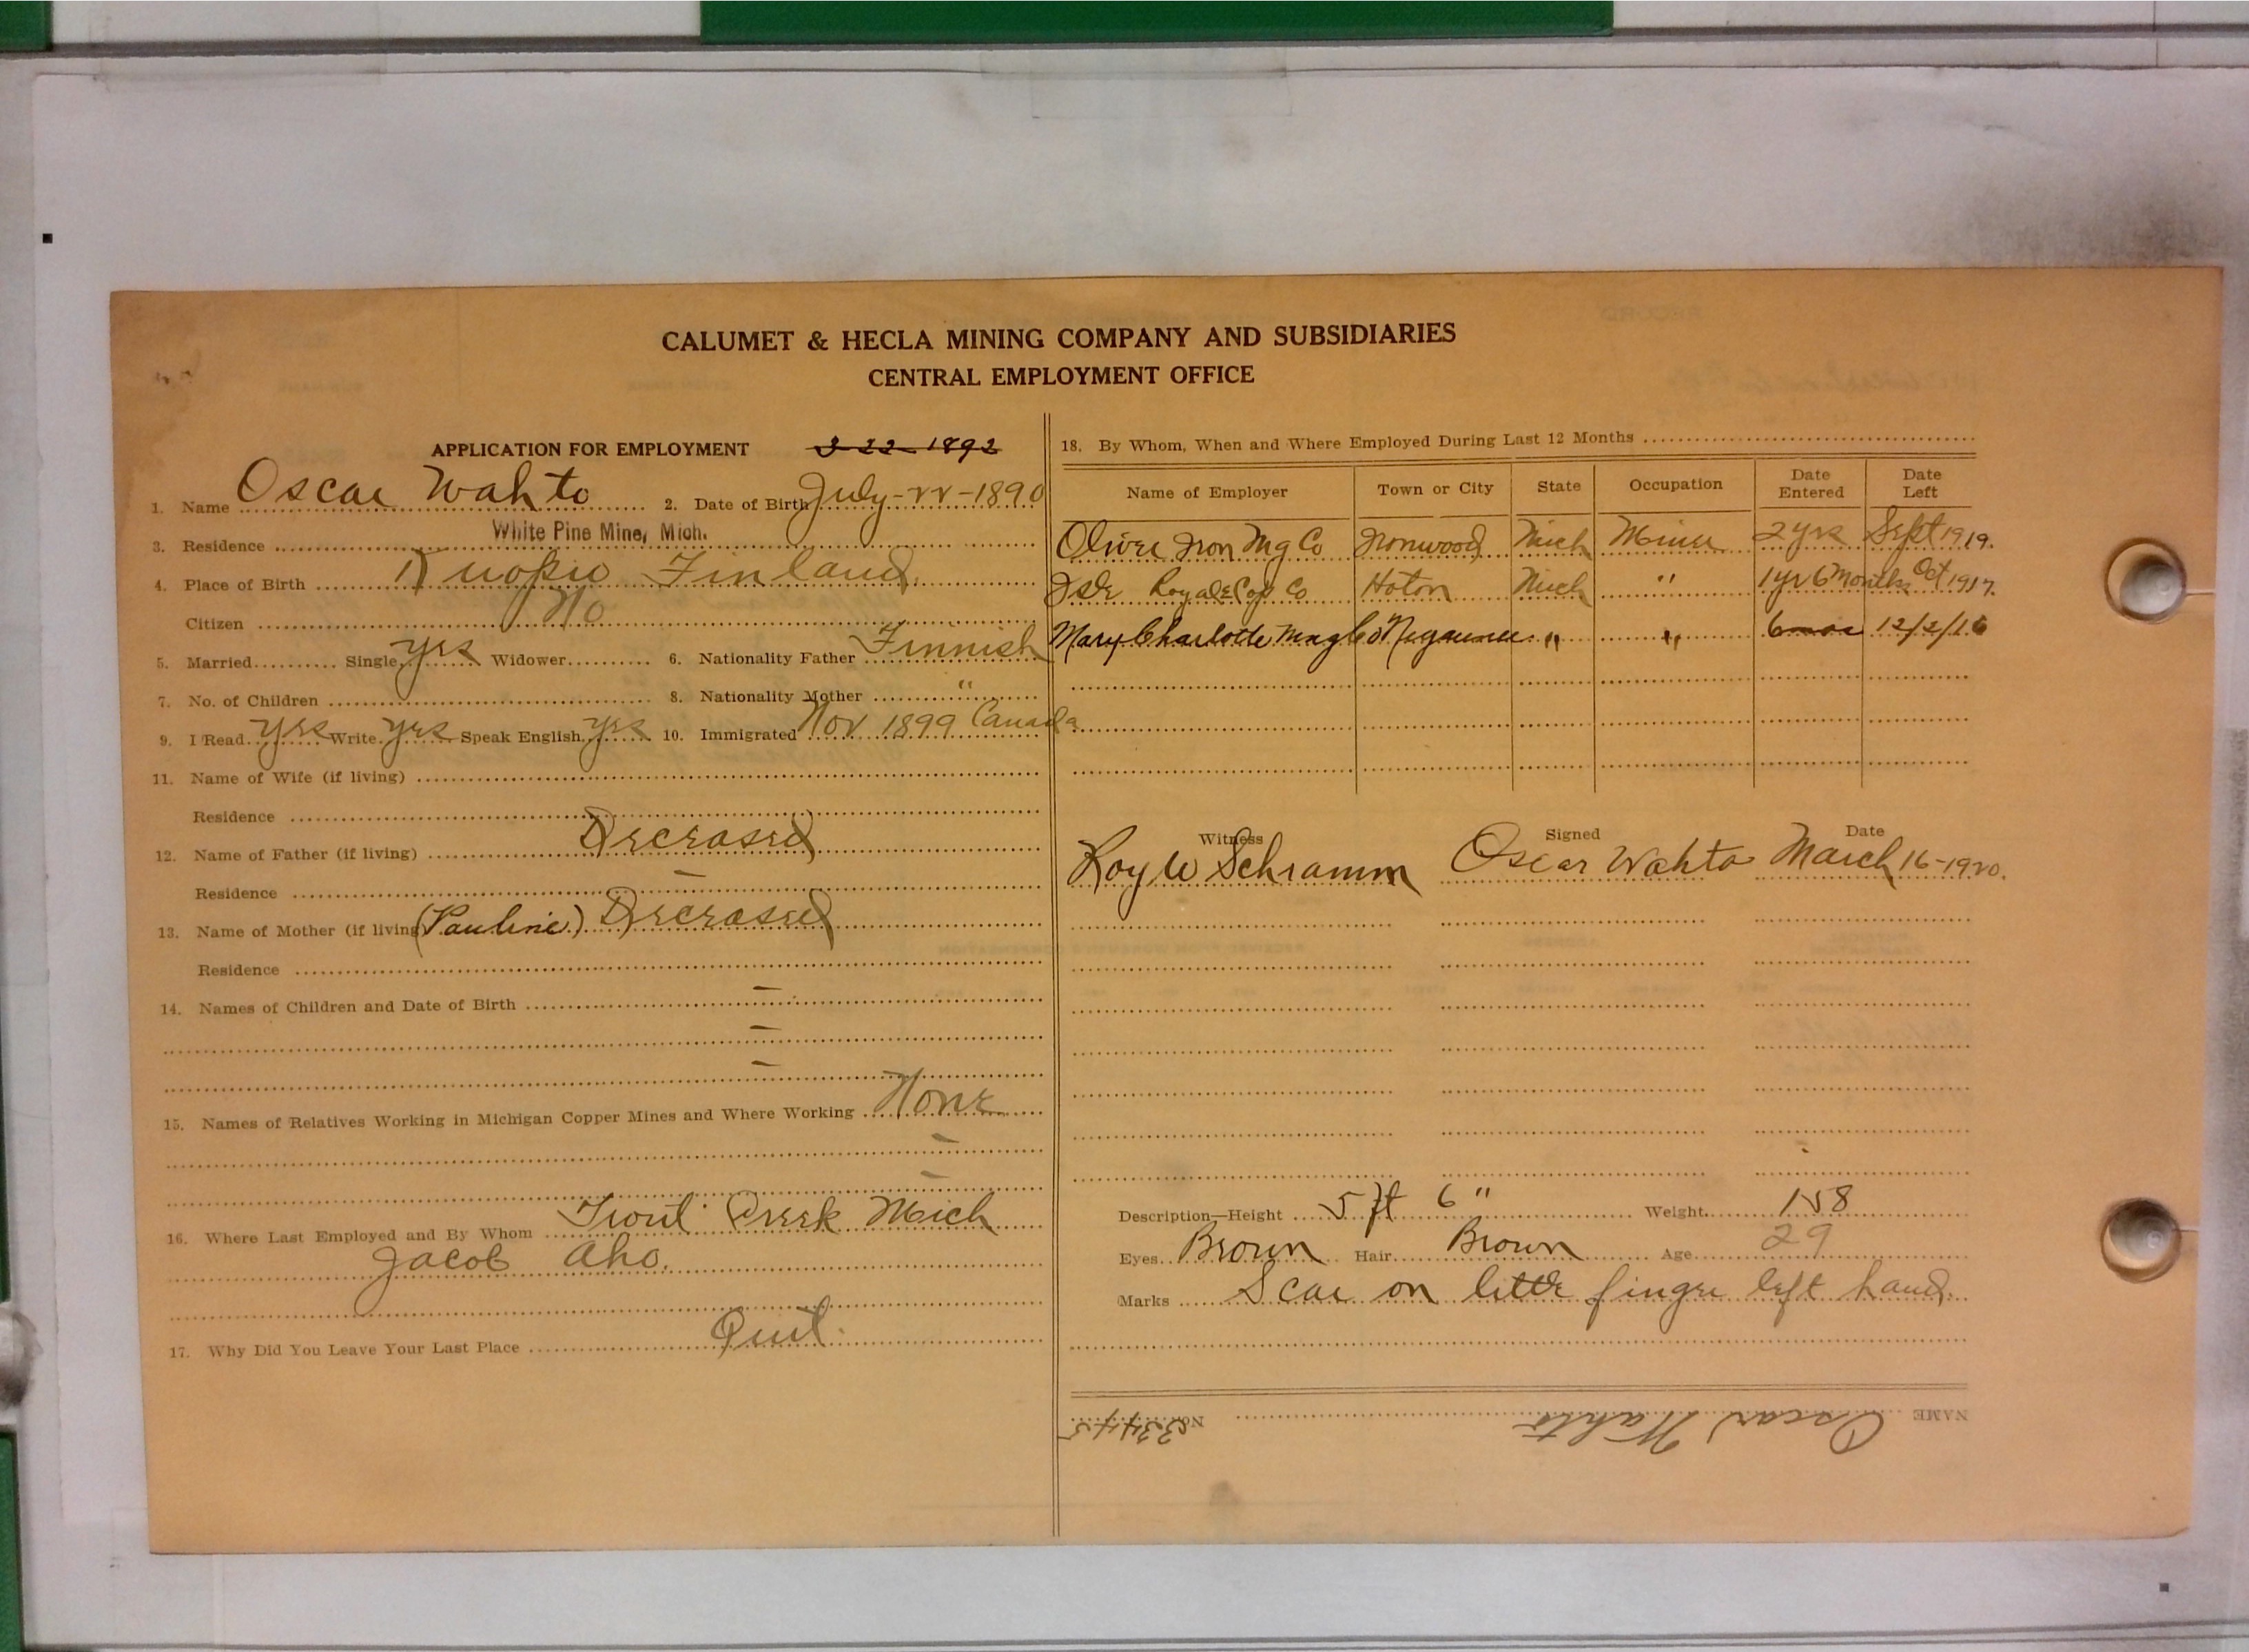 CALUMET & HECLA MINING COMPANY AND SUBSIDIARIES
CENTRAL EMPLOYMENT OFFICE
APPLICATION FOR EMPLOYMENT 3-22-1892
1. Name Oscar Wahto 2. Date of Birth July-22-1890
3. Residence White Pine Mine, Mich.
4. Place of Birth Kuopio Finland.
Citizen No
5. Married Single yes Widower 6. Nationality Father Finnish
7. No. of Children 8. Nationality Mother "
9. I Read yes Write yes Speak English yes 10. Immigrated Nov 1899 Canada
11. Name of Wife (if living)
Residence
12. Name of Father (if living) Deceased
Residence –
13. Name of Mother (if living) (Pauline) Deceased
Residence
14. Names of Children and Date of Birth –
–
–
15. Names of Relatives Working in Michigan Copper Mines and Where Working None
–
–
16. Where Last Employed and By Whom Trout Creek Mich
Jacob Aho.
17. Why Did You Leave Your Last Place Quit.
18. By Whom, When and Where Employed During Last 12 Months
Name of Employer Town or City State Occupation Date Entered Date Left
Oliver Iron Mg Co Ironwood Mich Miner 2 yrs Sept 1919.
Isle Royale Cop Co Hoton Mich " 1 yr 6 months Oct 1917.
Mary Charlotte Mng Co Negaunee " " 6 mos 12/2/16
Witness Signed Date
Roy W Schramm Oscar Wahto March 16-1920.
Description—Height 5 ft 6" Weight 158
Eyes Brown Hair Brown Age 29
Marks Scar on little finger left hand.
NAME Oscar Wahto No. 83445